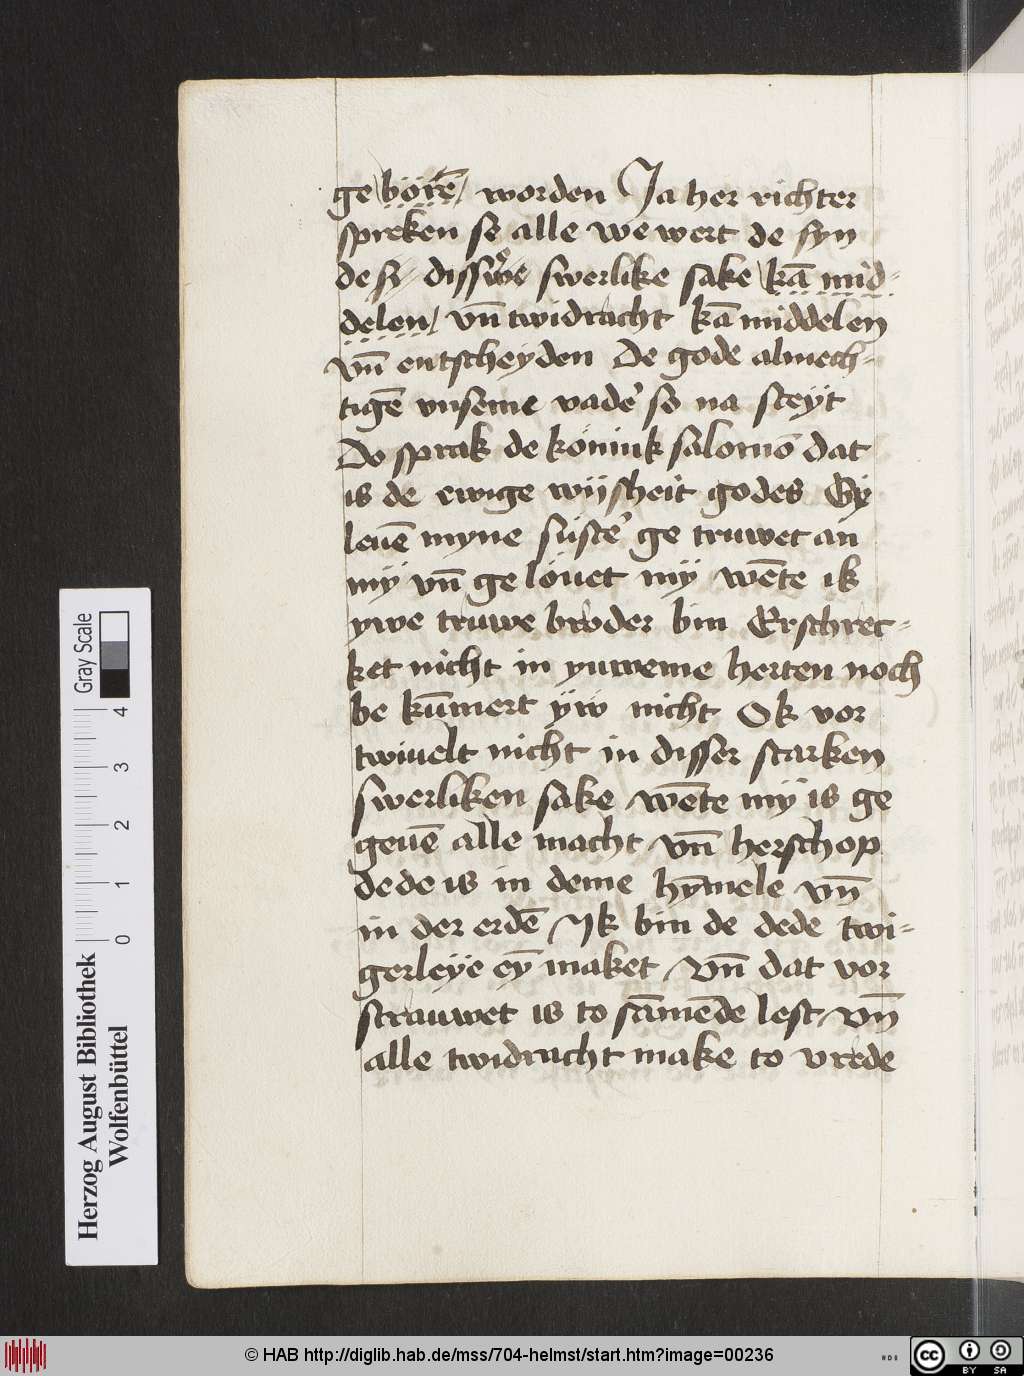 ge börē worden Ja her richter
spreken se alle we wert de syn
de sy disswͤe swerlike sake kā mid-
delen vn̄ twidracht kā middelen
vn̄ entscheyden De gode almech-
tigē vnseme vade' so na steÿt
Do sprak de könink salomō dat
is de ewige wijsheit godes Gÿ
leuē myne süste' ge truwet an
mÿ vn̄ ge löuet mÿ wēte ik
ywe truwe broder bin Erschrec-
ket nicht in yuweme herten noch
be kūmert ÿw nicht Ok vor
twiuelt nicht in disser starken
swerliken sake wēte mÿ is ge
geuē alle macht vn̄ herschop
de de is in deme hȳmele vn̄
in der erdē Jk bin de dede twi-
gerleÿe eȳ maket Vn̄ dat vor
strauwet is to sāmēde lest vn̄
alle twidracht make to vrede
Herzog August Bibliothek
Wolfenbüttel
0 1 2 3 4
Gray Scale
© HAB http://diglib.hab.de/mss/704-helmst/start.htm?image=00236
HAB
cc BY SA